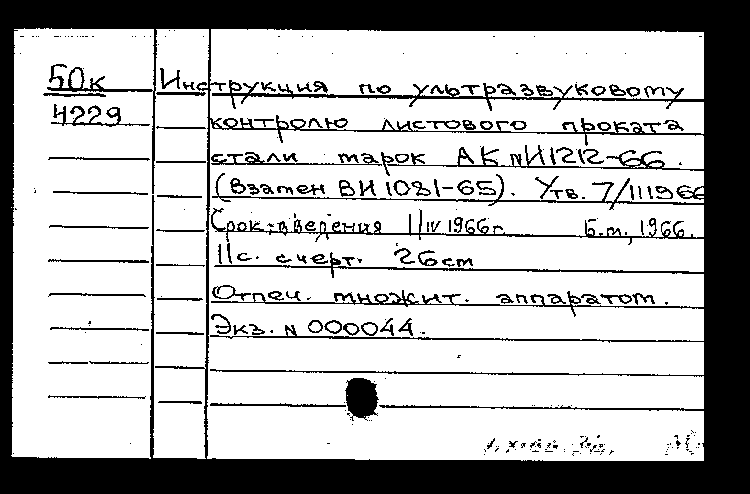 50к Инструкция по ультразвуковому
4229 контролю листового проката
стали марок АК №И1212-66.
(Взамен ВИ 1081-65). Утв. 7/III1966
Срок введения 1/IV 1966г. Б.м., 1966.
11с. с черт. 26см
Отпеч. множит. аппаратом.
Экз. N 000044.